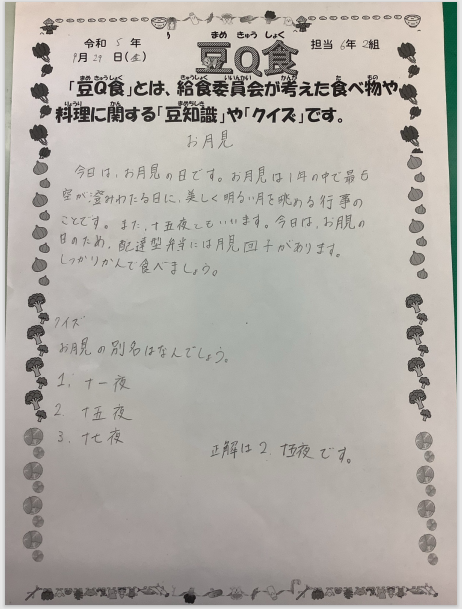 まめ きゅう しょく
令和 5 年 豆Q食 担当 6年 2組
9月 29 日(金)
まめ きゅうしょく きゅうしょく いいんかい かんが た もの
「豆Q食」とは、給食委員会が考えた食べ物や
りょうり かん まめちしき
料理に関する「豆知識」や「クイズ」です。
お月見
今日は、お月見の日です。お月見は1年の中で最も
空が澄みわたる日に、美しく明るい月を眺める行事の
ことです。また、十五夜ともいいます。今日は、お月見の
日のため、配達型弁当には月見団子があります。
しっかりかんで食べましょう。
クイズ
お月見の別名はなんでしょう。
1. 十一夜
2. 十五夜
3. 十七夜
正解は 2. 十五夜 です。